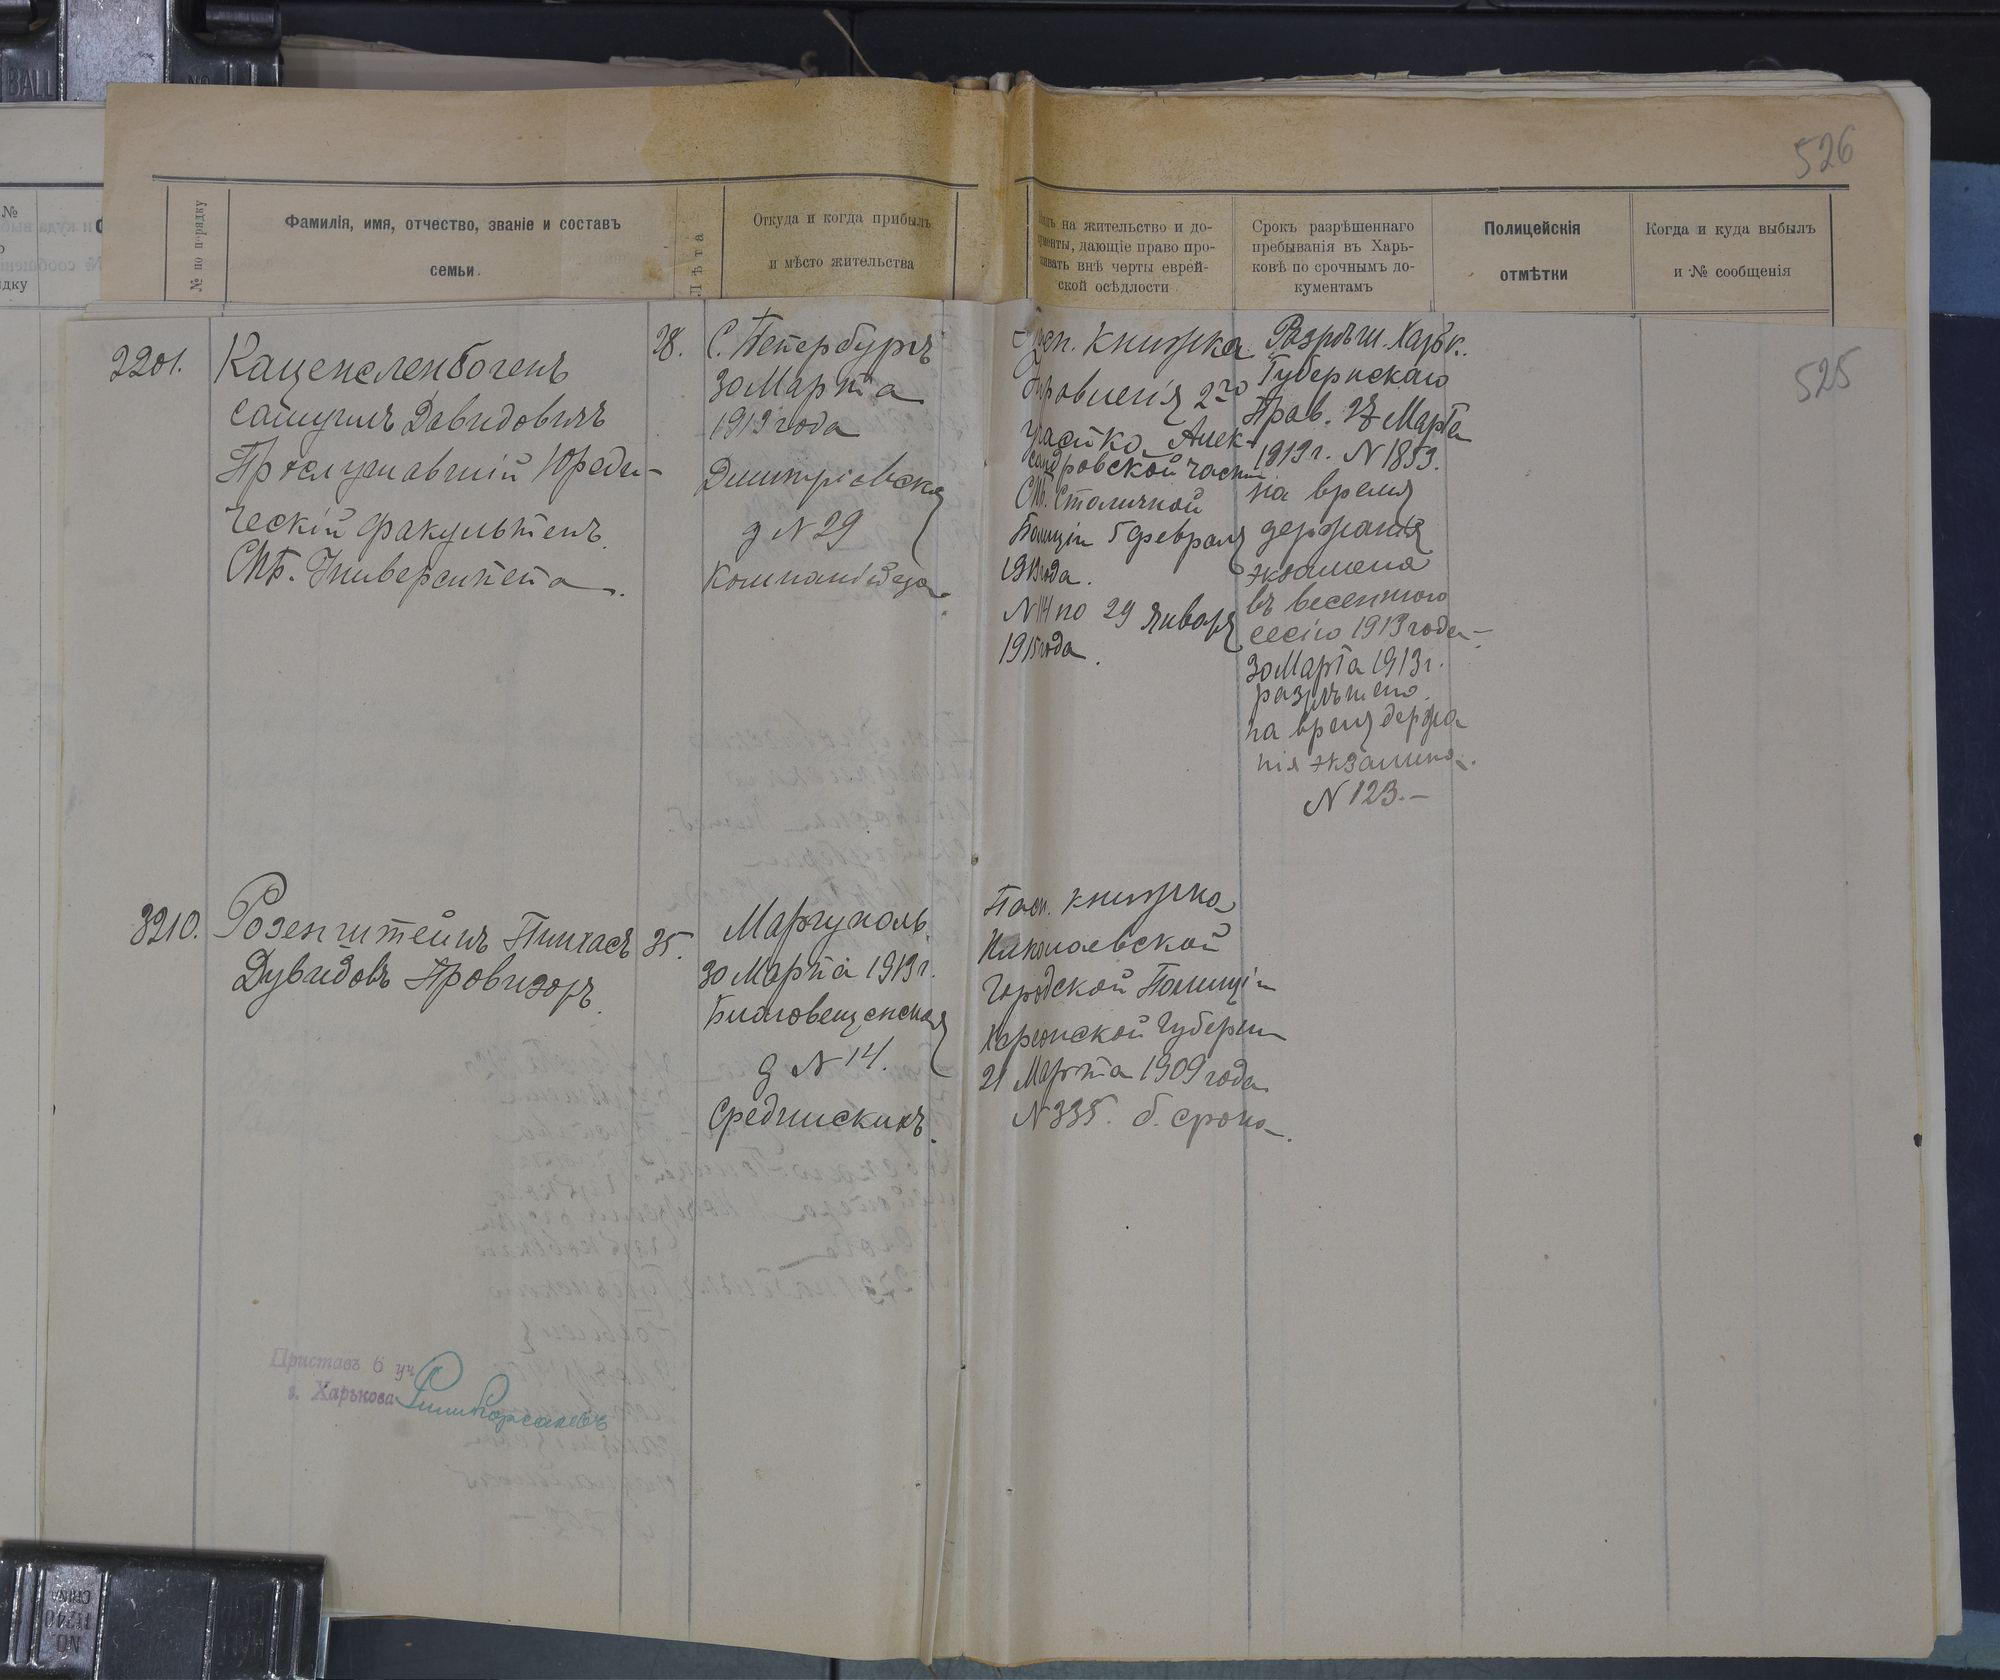 526
№ по порядку
Фамилія, имя, отчество, званіе и составъ
семьи
Лѣта
Откуда и когда прибылъ
и мѣсто жительства
Видъ на жительство и до-
кументы, дающіе право про-
живать внѣ черты еврей-
ской осѣдлости
Срокъ разрѣшеннаго
пребыванія въ Харь-
ковѣ по срочнымъ до-
кументамъ
Полицейскія
отмѣтки
Когда и куда выбылъ
и № сообщенія
525
Каценеленбогенъ
Самуилъ Давидовичъ
Прослушавшій Юриди-
ческій факультетъ
СПб. Университета.
С. Петербургъ
30 Марта
1913 года
Дмитріевская
д N 29
книжка
Управленія 2го
участка Алек-
сандровской части
СПб. Столичной
Полиціи 5 февраля
1913 года.
N 141 по 29 Января
1915 года.
Разрѣш. Харьк.
Губернскаго
Прав. 27 Марта
1913 г. N 1853.
на время
держанія
экзамена
въ весеннюю
сесію 1913 года -
30 Марта 1913 г.
разрѣшено
на время держа
нія экзамена.
N 123. -
3210.
Розенштейнъ Пинхасъ
Дувидовъ Провизоръ.
35.
Маріуполь.
30 Марта 1913 г.
Благовещенская
д N 14.
Пасп. книжка
Николаевской
Городской Полиціи
Херсонской Губерніи
21 Марта 1909 года
N 335. б. срока.
Приставъ 6 уч.
г. Харькова